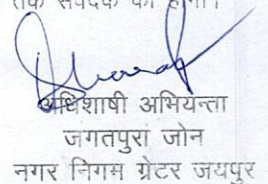 तक संवेदक की होगी।
अधिशाषी अभियन्ता
जगतपुरा जोन
नगर निगम ग्रेटर जयपुर